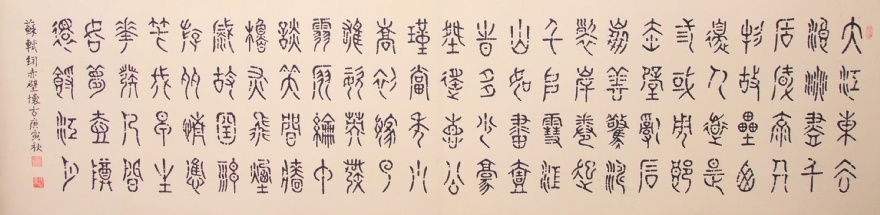 大江東去
浪淘盡千
古風流人
物故壘西
邊人道是
三國周郎
赤壁亂石
崩雲驚濤
裂岸卷起
千堆雪江
山如畫壹
時多少豪
傑遙想公
瑾當年小
喬初嫁了
雄姿英發
羽扇綸巾
談笑間檣
櫓灰飛煙
滅故國神
游多情應
笑我早生
華髮人間
如夢壹樽
還酹江月
蘇軾詞赤壁懷古庚寅秋